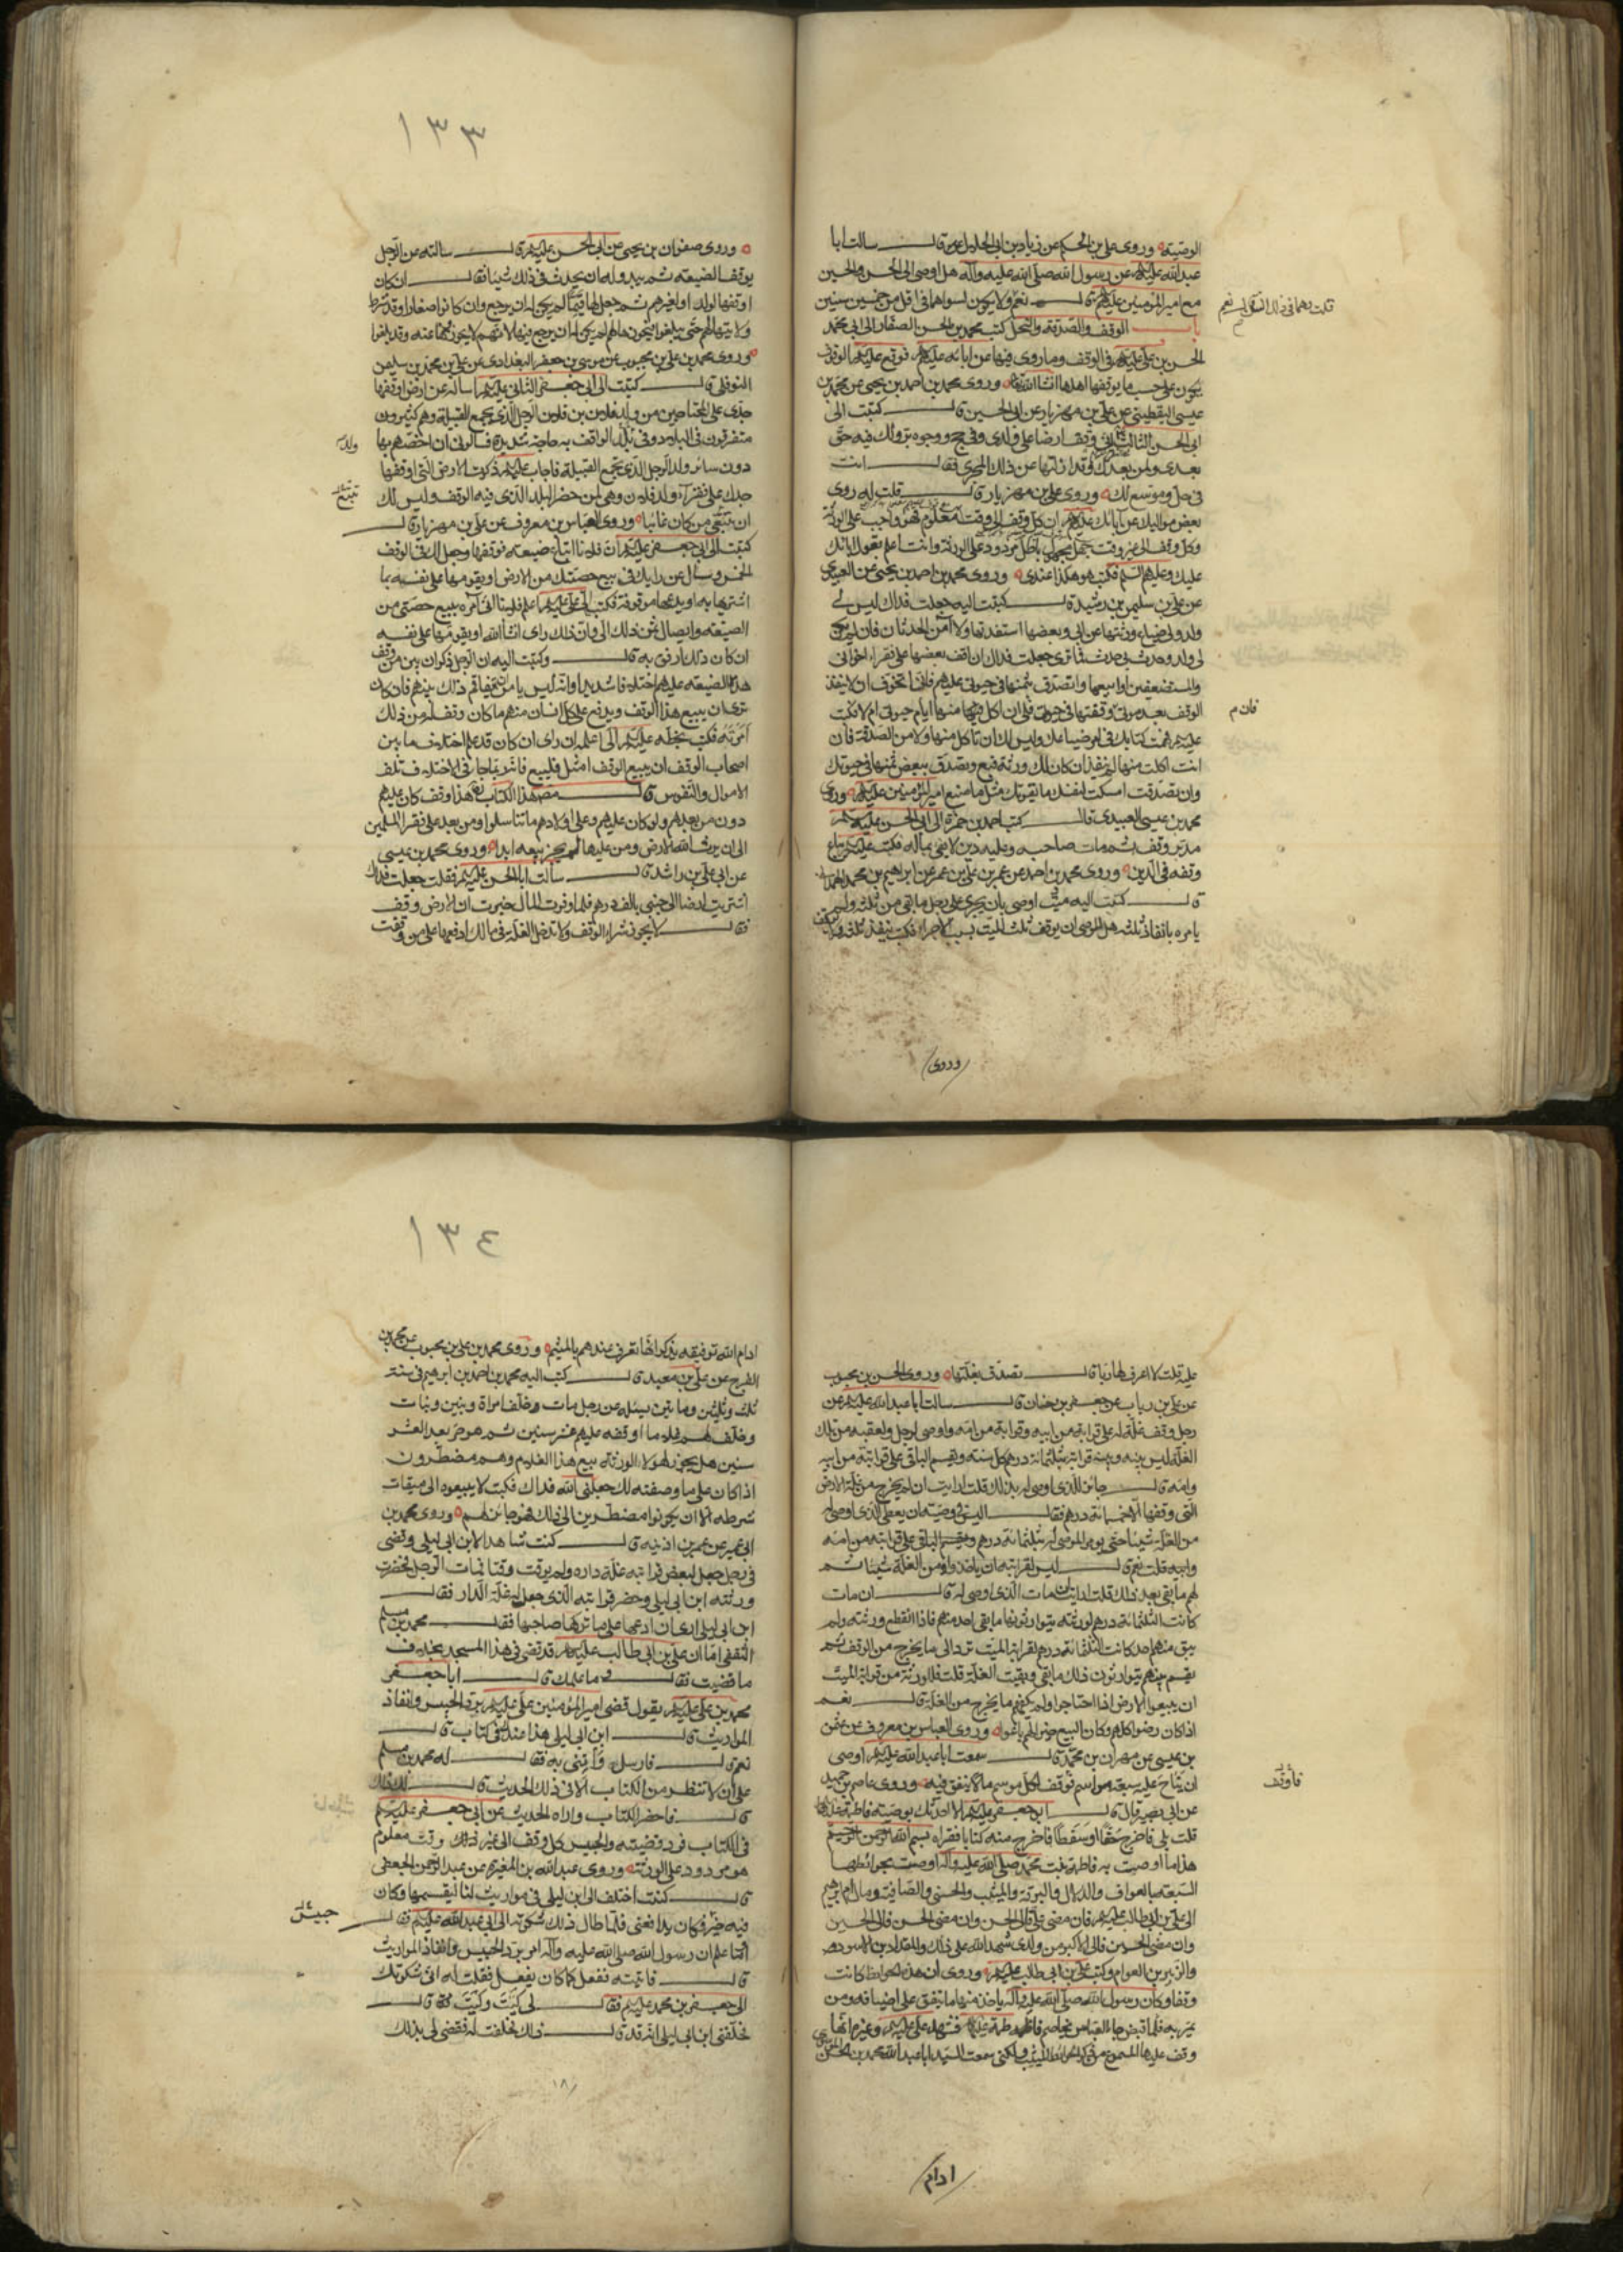 الوصية وروى علي بن الحكم عن زياد بن ابي الحلال قال سالت ابا
عبد الله عليه السلم عن رسول الله صلى الله عليه وآله هل اوصى الى الحسن والحسين
مع امير المؤمنين عليهم قال نعم ولا يكون لسواهما في اقل من خمس سنين
باب الوقف والصدقة والنحل كتب محمد بن الحسن الصفار الى ابي محمد
الحسن بن علي عليه في الوقف وما روى فيها عن ابائه عليهم فوقع عليه الوقوف
يكون على حسب ما يوقفها اهلها انشا الله وروى محمد بن احمد بن يحيى عن محمد بن
عيسى اليقطيني عن علي بن مهزيار عن ابي الحسين قال كتبت الى
ابي الحسن الثالث اني وقفت ارضا على ولدي وفي حج ووجوه بر ولك فيه حق
بعدي ولمن بعدك وقد ازلتها عن ذلك المجرى فقال انت
في حل وموسع لك وروى علي بن مهزيار قال قلت له روى
بعض مواليك عن آبائك عليهم ان كل وقف الى وقت معلوم فهو واجب على الورثة
وكل وقف الى غير وقت جهل مجهول باطل مردود على الورثة وانت اعلم بقول ابائك
عليك وعليهم السلم فكتب هو هكذا عندي وروى محمد بن احمد بن يحيى عن العبيدي
عن علي بن سليمن بن رشيد قال كتبت اليه جعلت فداك ليس لي
ولد ولي ضياع ورثتها عن ابي وبعضها استفدتها ولا آمن الحدثان فان لم يكن
لي ولد وحدث بي حدث فما ترى جعلت فداك ان اقف بعضها على فقراء اخواني
والمستضعفين او ابيعها واتصدق بثمنها في حيوتي عليهم فاني اتخوف ان لا ينفذ
الوقف بعد موتي وقفتها في حيوتي فلي ان اكل منها ايام حيوتي ام لا فكتب
عليه فهمت كتابك في امر ضياعك وليس لك ان تاكل منها ولا من الصدقة فان
انت اكلت منها لم ينفذ ان كان لك ورثة فبع وتصدق ببعض ثمنها في حيوتك
وان تصدقت امسكت لنفسك ما يقوتك مثل ما صنع امير المؤمنين عليه وروى
محمد بن عيسى العبيدي قال كتب احمد بن حمزة الى ابي الحسن عليه
مدبر وقف ثم مات صاحبه وعليه دين لا يفي بماله فكتب عليه يباع
وقفه في الدين وروى محمد بن احمد عن عمر بن علي بن عمر عن ابراهيم بن محمد الهمداني
قال كتبت اليه ميت اوصى بان يجرى على رجل ما بقي من ثلثه ولم
يامره بانفاذ ثلثه هل للوصي ان يوقف ثلث الميت بسبب الاجراء فكتب ينفذ ثلثه ولا يوقف
فان م
وروى
١٣٣
وروى صفوان بن يحيى عن ابي الحسن عليه قال سالته عن الرجل
يوقف الضيعة ثم يبدو له ان يحدث في ذلك شيئا فقال ان كان
اوقفها لولده او لغيرهم ثم جعل لها قيما لم يكن له ان يرجع وان كانوا صغارا وقد شرط
ولايتها لهم حتى يبلغوا فيحوزها لهم لم يكن له ان يرجع فيها لانهم لا يحوزونها عنه وقد بلغوا
وروى محمد بن علي بن محبوب عن موسى بن جعفر البغدادي عن علي بن محمد بن سليمن
النوفلي قال كتبت الى ابي جعفر الثاني عليه اساله عن ارض اوقفها
جدي على المحتاجين من ولد فلان بن فلان الرجل الذي يجمع القبيلة وهم كثيرون
متفرقون في البلاد وفي ولد الواقف به حاجة شديدة فسالوني ان اخصهم بها
ولد
دون سائر ولد الرجل الذي يجمع القبيلة فاجاب عليه ذكرت الارض التي اوقفها
جدك على فقراء ولد فلان وهي لمن حضر البلد الذي فيه الوقف وليس لك
تتبع
ان تتبع من كان غائبا وروى العباس بن معروف عن علي بن مهزيار قال
كتبت الى ابي جعفر عليه ان فلانا ابتاع ضيعة فوقفها وجعل لك في الوقف
الخمس وسال عن رايك في بيع حصتك من الارض او يقومها على نفسه بما
اشتريها به او يدعها موقوفة فكتب الي عليه اعلم فلانا اني آمره ببيع حصتي من
الضيعة وايصال ثمن ذلك الي وان ذلك راى انشا الله او يقومها على نفسه
ان كان ذلك ارفق به قال وكتبت اليه ان الرجل ذكر ان بين من وقف
هذه الضيعة عليهم اختلافا شديدا وانه ليس يامن ان يتفاقم ذلك بينهم فان كان
ترى ان يبيع هذا الوقف ويدفع الى كل انسان منهم ما كان وقف له من ذلك
امرته فكتب بخطه عليه الي اعلمه ان راى ان كان قد علم اختلاف ما بين
اصحاب الوقف ان يبيع الوقف امثل فليبيع فانه ربما جاء في الاختلاف تلف
الاموال والنفوس قال مصنف هذا الكتاب هذا وقف كان عليهم
دون من بعدهم ولو كان عليهم وعلى اولادهم ما تناسلوا ومن بعد على فقراء المسلمين
الى ان يرث الله الارض ومن عليها لم يجز بيعه ابدا وروى محمد بن عيسى
عن ابي علي بن راشد قال سالت ابا الحسن عليه فقلت جعلت فداك
اشتريت ارضا الى جنبي بالف درهم فلما وفرت المال خبرت ان الارض وقف
فقال لا يجوز شراء الوقف ولا تدخل الغلة في مالك ادفعها الى من وقفت
عليه قلت لا اعرف لها ربا قال تصدق بغلتها وروى الحسن بن محبوب
عن علي بن رياب عن جعفر بن حنان قال سالت ابا عبد الله عليه عن
رجل وقف غلة له على قرابة من ابيه وقرابة من امه واوصى لرجل ولعقبه من تلك
الغلة ليس بينه وبينه قرابة بثلثمائة درهم كل سنة ويقسم الباقي على قرابته من ابيه
وامه قال جائز للذي اوصى له بذلك قلت ارايت ان لم يخرج من غلة الارض
التي وقفها الا خمسمائة درهم فقال اليس في وصيته ان يعطى الذي اوصى له
من الغلة ثلثمائة درهم ويقسم الباقي على قرابته من امه
وابيه قلت نعم قال ليس لقرابته ان ياخذوا من الغلة شيئا حتى يوفى الموصى له بثلثمائة درهم ثم
لهم ما بقي بعد ذلك قلت ارايت ان مات الذي اوصى له قال ان مات
كانت الثلثمائة درهم لورثته يتوارثونها ما بقي احد منهم فاذا انقطع ورثته ولم
يبق منهم احد كانت الثلثمائة درهم لقرابة الميت ترد الى ما يخرج من الوقف ثم
يقسم بينهم يتوارثون ذلك ما بقي وبقيت الغلة قلت فللورثة من قرابة الميت
ان يبيعوا الارض اذا احتاجوا ولم يكفهم ما يخرج من الغلة قال نعم
اذا كان رضوا كلهم وكان البيع خيرا لهم باعوا وروى العباس بن معروف عن عثمن
بن عيسى عن مهران بن محمد قال سمعت ابا عبد الله عليه اوصى
ان يناح عليه سبعة مواسم فوقف لكل موسم مالا ينفق فيه وروى عاصم بن حميد
عن ابي بصير قال قال ابو جعفر عليه الا احدثك بوصية فاطمة عليها
قلت بلى فاخرج حقا او سفطا فاخرج منه كتابا فقراه بسم الله الرحمن الرحيم
هذا ما اوصت به فاطمة بنت محمد صلى الله عليه وآله اوصت بحوائطها
السبعة بالعواف والدلال والبرقة والميثب والحسنى والصافية ومال ام ابراهيم
الى علي بن ابي طالب عليه فان مضى علي فالى الحسن وان مضى الحسن فالى الحسين
وان مضى الحسين فالى الاكبر من ولدي شهد الله على ذلك والمقداد بن الاسود
والزبير بن العوام وكتب علي بن ابي طالب عليه وروى ان هذه الحوائط كانت
وقفا وكان رسول الله صلى الله عليه وآله ياخذ منها ما ينفق على اضيافه ومن
يمر به فلما قبض جاء العباس يخاصم فاطمة عليها فشهد علي عليه وغيره انها
وقف عليها المسموع من ذكر احد الحوائط الميثب ولكني سمعت السيد ابا عبد الله محمد بن الحسن الموسوي
ادام
١٣٤
ادام الله توفيقه يذكر انها تعرف عندهم بالميثم وروى محمد بن علي بن محبوب عن محمد بن
الفرج عن علي بن معبد قال كتب اليه محمد بن احمد بن ابراهيم في سنة
ثلث وثلثين ومايتين يسئله عن رجل مات وخلف امراة وبنين وبنات
وخلف لهم غلاما اوقفه عليهم عشر سنين ثم هو حر بعد العشر
سنين هل يجوز لهؤلاء الورثة بيع هذا الغلام وهم مضطرون
اذا كان على ما وصفته لك جعلني الله فداك فكتب لا يبيعوه الى ميقات
شرطه الا ان يكونوا مضطرين الى ذلك فهو جائز لهم وروى محمد بن
ابي عمير عن عمر بن اذينه قال كنت شاهدا لابن ابي ليلى وقضى
في رجل جعل لبعض قرابته غلة داره ولم يوقت وقتا فمات الرجل فحضرت
ورثته ابن ابي ليلى وحضر قرابته الذي جعل له غلة الدار فقال
ابن ابي ليلى ارى ان ادعها على ما تركها صاحبها فقال محمد بن مسلم
الثقفي اما ان علي بن ابي طالب عليه قد قضى في هذا المسجد بخلاف
ما قضيت فقال ما علمك قال سمعت ابا جعفر
محمد بن علي عليه يقول قضى امير المؤمنين علي عليه برد الحبيس وانفاذ
المواريث قال ابن ابي ليلى هذا عندك في كتاب قال
نعم قال فارسل وائتني به فقال له محمد بن مسلم
على ان لا تنظر من الكتاب الا في ذلك الحديث قال لك ذاك
قال فاحضر الكتاب واراه الحديث عن ابي جعفر عليه
في الكتاب فرد قضيته والحبيس كل وقف الى غير وقت معلوم
هو مردود على الورثة وروى عبد الله بن المغيرة عن عبد الرحمن الجعفي
قال كنت اختلف الى ابن ليلى في مواريث لنا ليقسمها وكان
فيه حبيس فكان يدافعني فلما طال ذلك شكوته الى ابي عبد الله عليه فقال
حبيس
اما علم ان رسول الله صلى الله عليه وآله امر برد الحبيس وانفاذ المواريث
قال فاتيته ففعل كما كان يفعل فقلت له اني شكوتك
الى جعفر بن محمد عليه فقال لي كيت وكيت قال
فحلفني ابن ابي ليلى انه قد قال ذلك فحلفت له فقضى لي بذلك